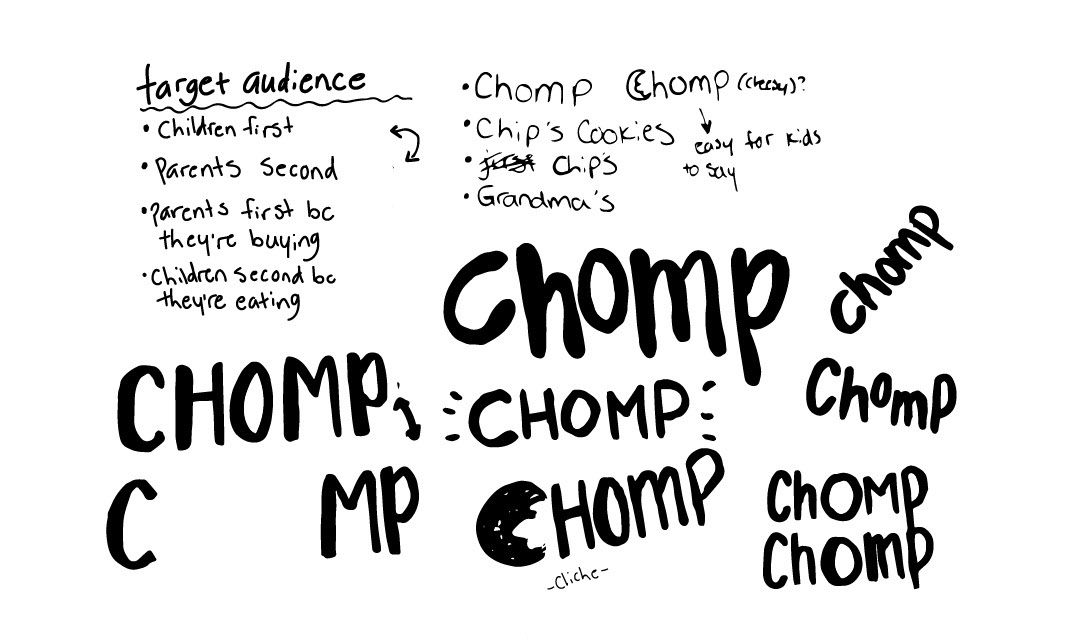 target audience
• Children first
• Parents second
• Parents first bc
they're buying
• Children second bc
they're eating
• Chomp Chomp (cheesy)?
easy for kids
to say
• Chip's Cookies
• Chip's
• Grandma's
Chomp
chomp
CHOMP
CHOMP
ChomP
C MP
CHOMP
-cliche-
ChOMP
ChOmP